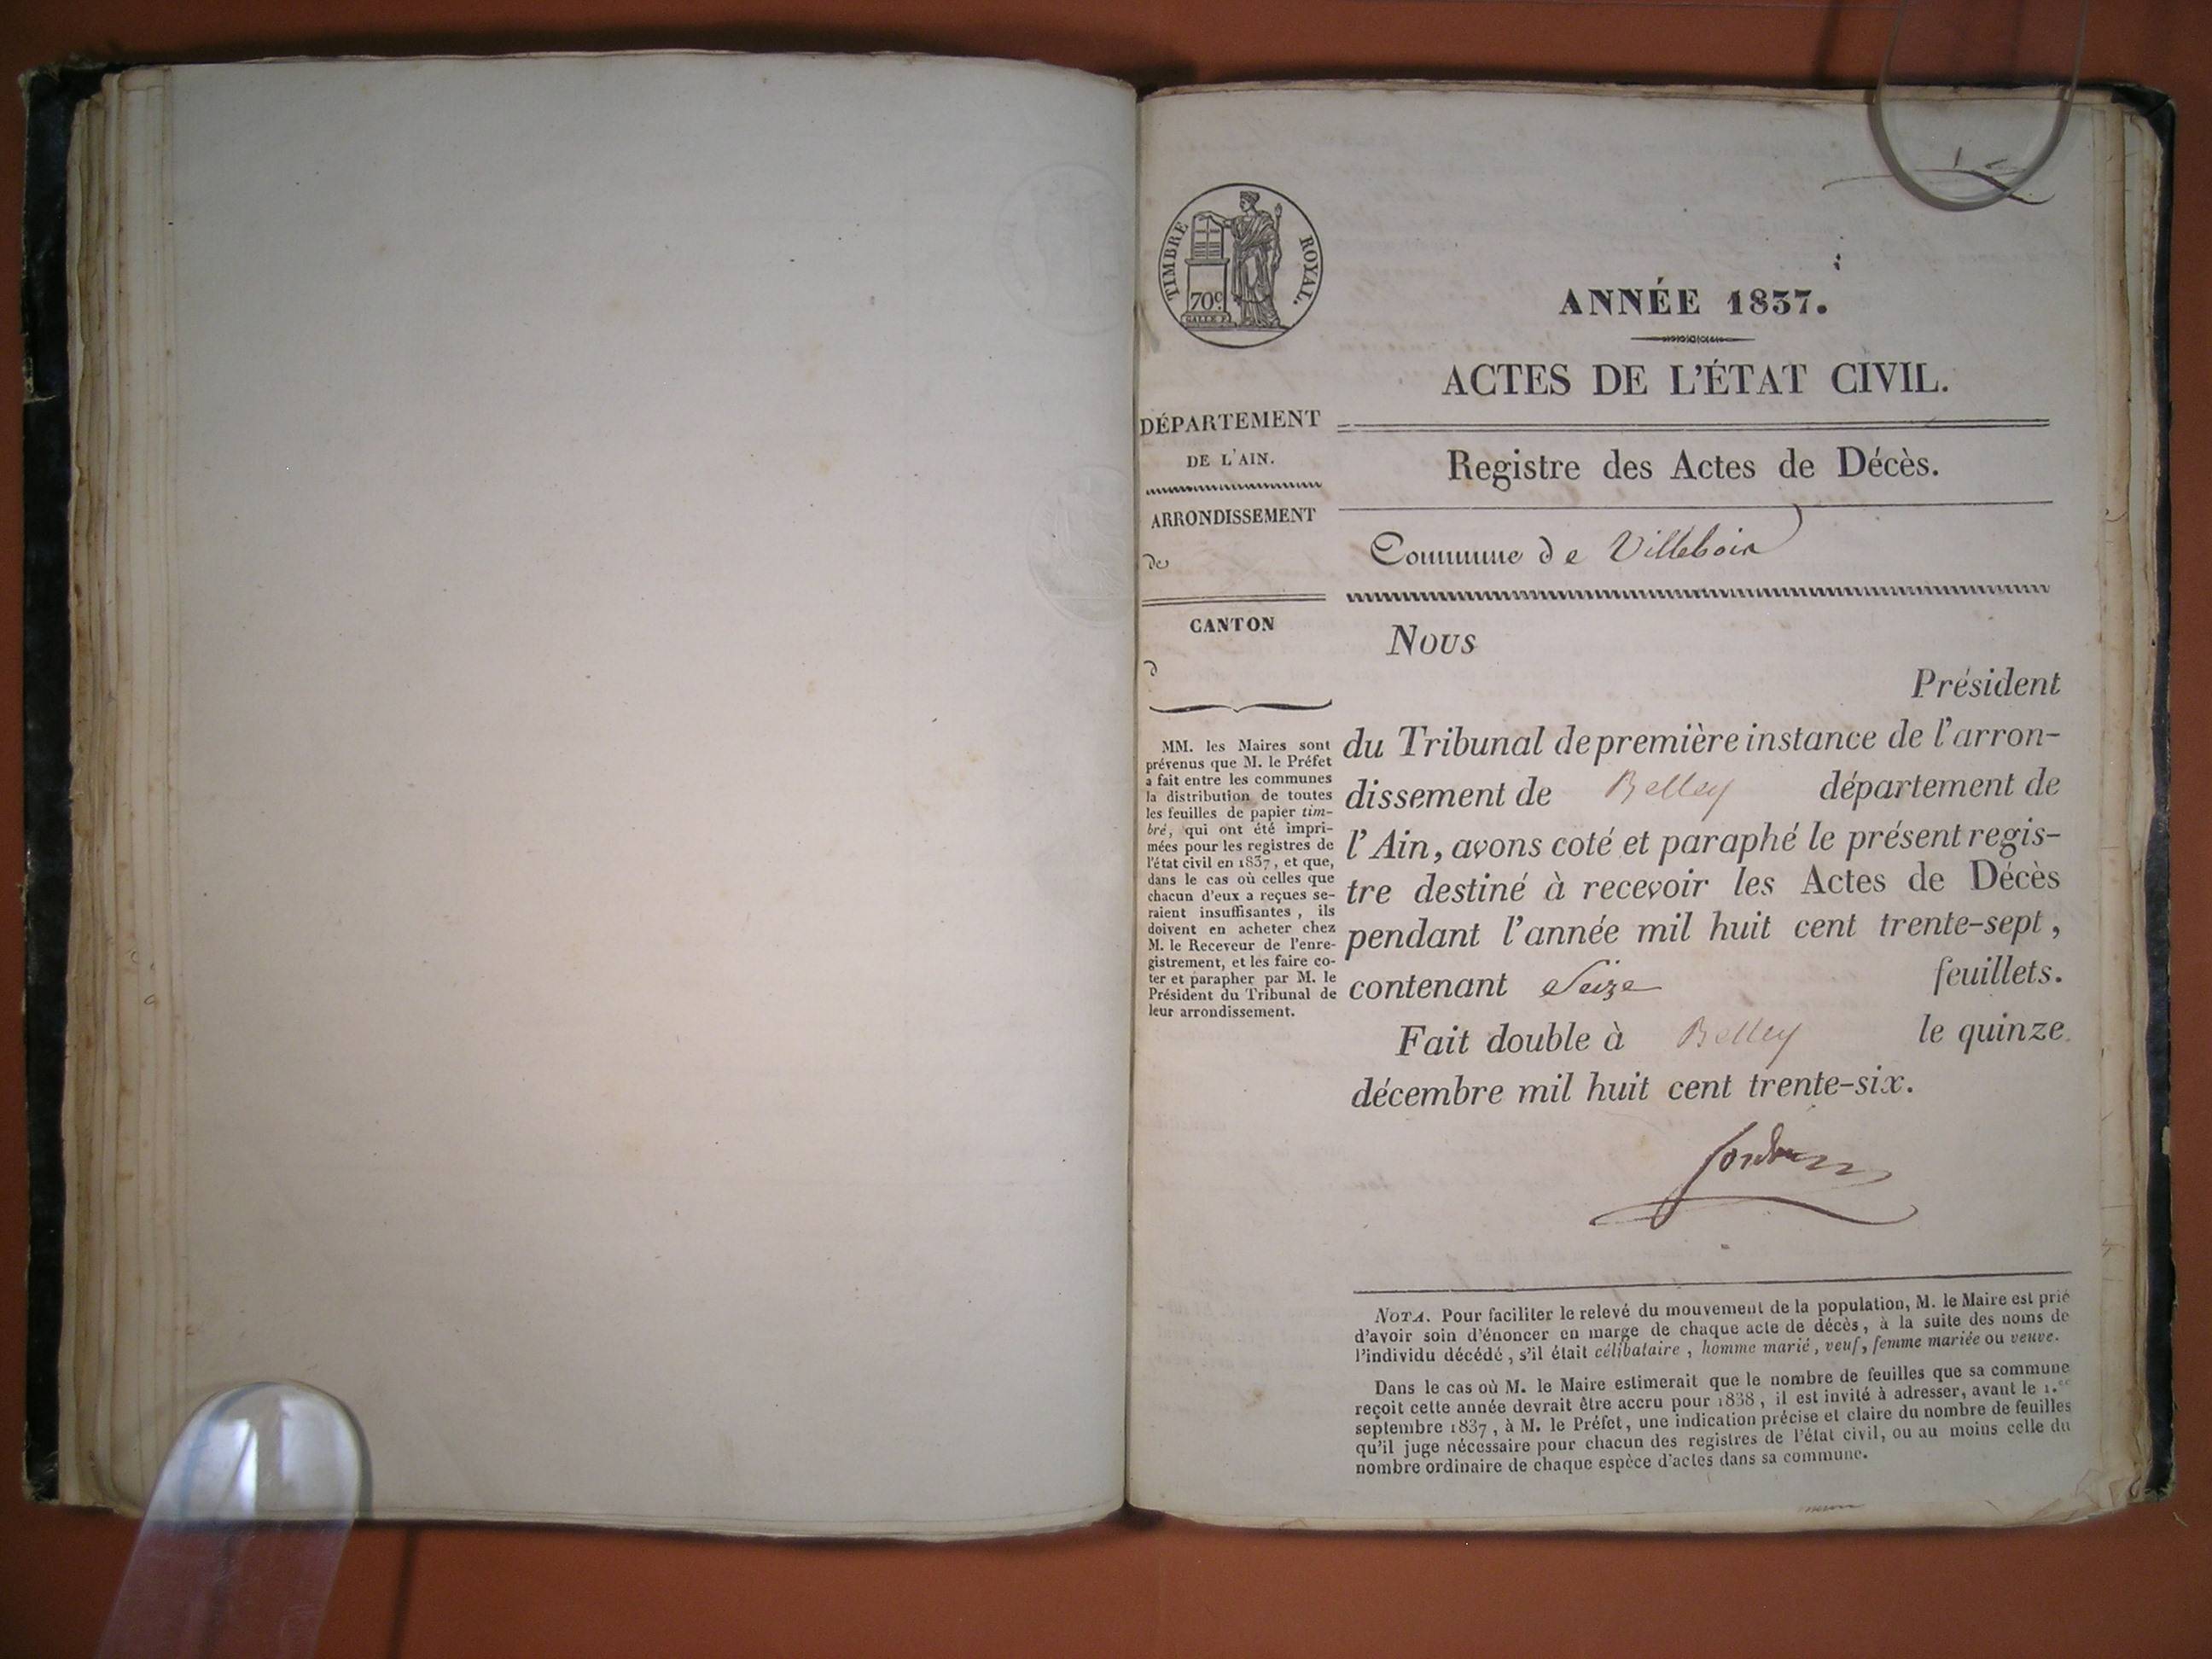 TIMBRE ROYAL.
70c.
GALLE F.
DÉPARTEMENT
DE L'AIN.
ARRONDISSEMENT
de
CANTON
d
MM. les Maires sont
prévenus que M. le Préfet
a fait entre les communes
la distribution de toutes
les feuilles de papier tim-
bré, qui ont été impri-
mées pour les registres de
l'état civil en 1837, et que,
dans le cas où celles que
chacun d'eux a reçues se-
raient insuffisantes, ils
doivent en acheter chez
M. le Receveur de l'enre-
gistrement, et les faire co-
ter et parapher par M. le
Président du Tribunal de
leur arrondissement.
ANNÉE 1837.
ACTES DE L'ÉTAT CIVIL.
Registre des Actes de Décès.
Commune de Villebois
Nous
Président
du Tribunal de première instance de l'arron-
dissement de Belley département de
l'Ain, avons coté et paraphé le présent regis-
tre destiné à recevoir les Actes de Décès
pendant l'année mil huit cent trente-sept,
contenant Seize feuillets.
Fait double à Belley le quinze
décembre mil huit cent trente-six.
NOTA. Pour faciliter le relevé du mouvement de la population, M. le Maire est prié
d'avoir soin d'énoncer en marge de chaque acte de décès, à la suite des noms de
l'individu décédé, s'il était célibataire, homme marié, veuf, femme mariée ou veuve.
Dans le cas où M. le Maire estimerait que le nombre de feuilles que sa commune
reçoit cette année devrait être accru pour 1838, il est invité à adresser, avant le 1.er
septembre 1837, à M. le Préfet, une indication précise et claire du nombre de feuilles
qu'il juge nécessaire pour chacun des registres de l'état civil, ou au moins celle du
nombre ordinaire de chaque espèce d'actes dans sa commune.